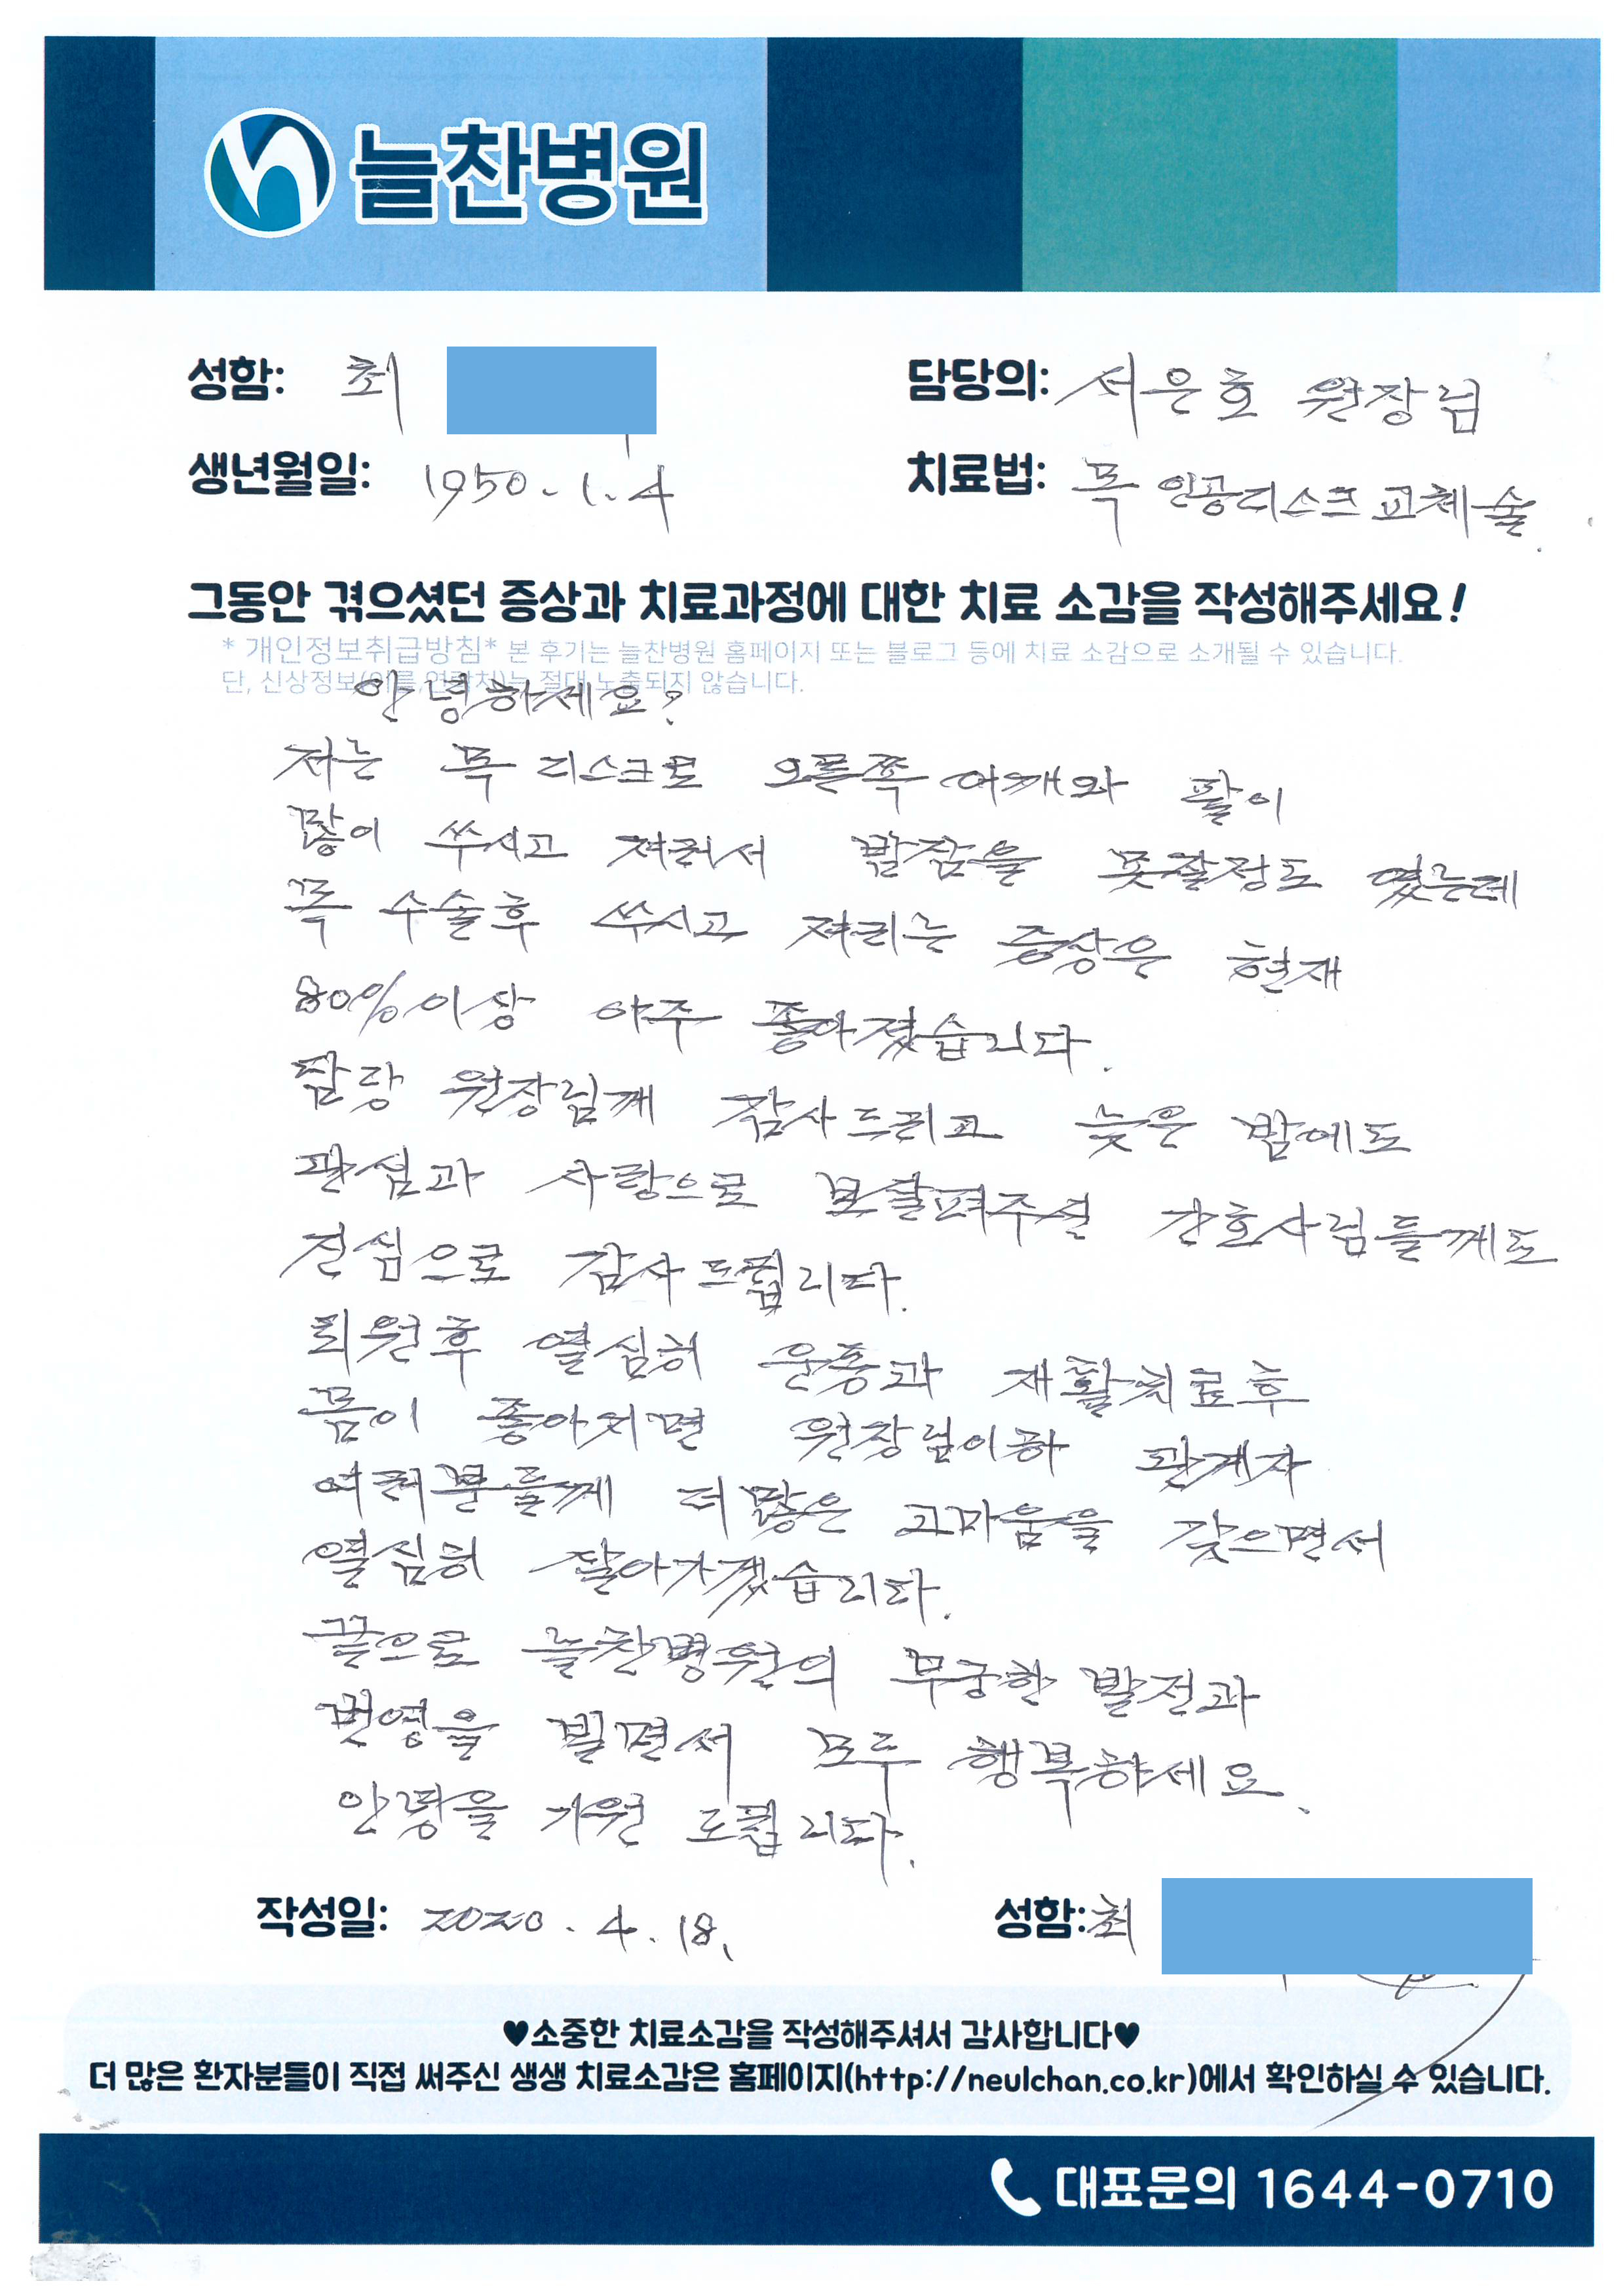 늘찬병원
성함: 최
담당의: 서은호 원장님
생년월일: 1950. 1. 4
치료법: 목 인공디스크 교체술.
그동안 겪으셨던 증상과 치료과정에 대한 치료 소감을 작성해주세요!
* 개인정보취급방침* 본 후기는 늘찬병원 홈페이지 또는 블로그 등에 치료 소감으로 소개될 수 있습니다.
단, 신상정보(이름,연락처)는 절대 노출되지 않습니다.
안녕하세요?
저는 목 디스크로 오른쪽 어깨와 팔이
많이 쑤시고 져려서 밤잠을 못잘정도 였는데
목 수술후 쑤시고 져리는 증상은 현재
80%이상 아주 좋아졌습니다.
담당 원장님께 감사드리고 늦은 밤에도
관심과 사랑으로 보살펴주신 간호사님들께도
진심으로 감사드립니다.
퇴원후 열심히 운동과 재활치료후
몸이 좋아지면 원장님이하 관계자
여러분들께 더 많은 고마움을 갖으면서
열심히 살아가겠습니다.
끝으로 늘찬병원의 무궁한 발전과
번영을 빌면서 모두 행복하세요.
안녕을 기원 드립니다.
작성일: 2020. 4. 18,
성함:최
♥소중한 치료소감을 작성해주셔서 감사합니다♥
더 많은 환자분들이 직접 써주신 생생 치료소감은 홈페이지(http://neulchan.co.kr)에서 확인하실 수 있습니다.
대표문의 1644-0710